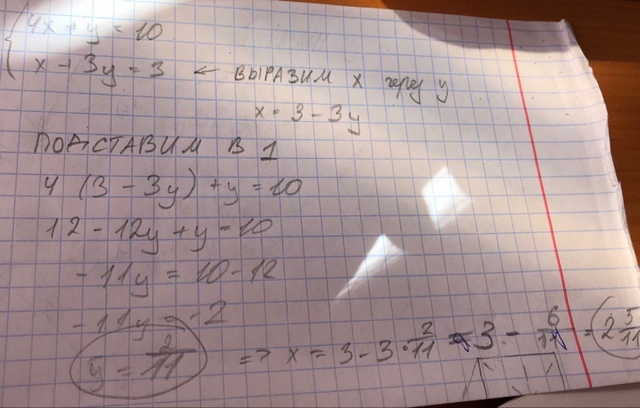 4x + y = 10
x + 3y = 3 ← ВЫРАЗИМ x через y
x = 3 - 3y
ПОДСТАВИМ В 1
4 (3 - 3y) + y = 10
12 - 12y + y = 10
-11y = 10 - 12
-11y = -2
y = 2/11 => x = 3 - 3 · 2/11 = 3 - 6/11 = 2 5/11